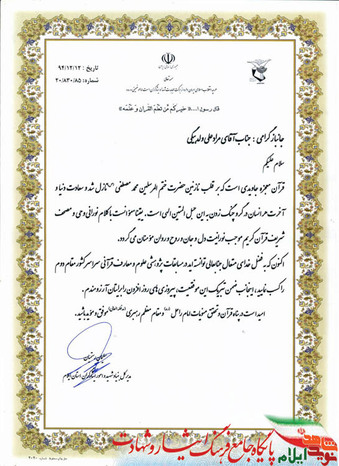 تاریخ: ۹۴/۱۲/۱۲
شماره: ۲۰/۸۳۰/۸۵
قال رسول الله «خیرکم من تعلم القرآن و علمه»
جانباز گرامی: جناب آقای مراد علی ولدبیگی
سلام علیکم
قرآن معجزه جاویدی است که بر قلب نازنین حضرت ختم المرسلین محمد مصطفی نازل شد و سعادت دنیا و
آخرت هر انسان در گرو چنگ زدن به این حبل المتین الهی است. یقینا مؤانست با کلام نورانی وحی و مصحف
شریف قرآن کریم موجب نورانیت دل و جان و روح و روان مؤمنان می گردد.
اکنون که به فضل خدای متعال جنابعالی توانسته اید در مسابقات پژوهشی علوم و معارف قرآنی سراسر کشور مقام دوم
را کسب نمایید، اینجانب ضمن تبریک این موفقیت، پیروزی های روز افزون را برایتان آرزومندم.
امید است در پناه قرآن و تحقق منویات امام راحل و مقام معظم رهبری موفق و مؤید باشید.
مدیرکل بنیاد شهید و امور ایثارگران استان ایلام
پایگاه جامع فرهنگ ایثار و شهادت
نوید
ایلام